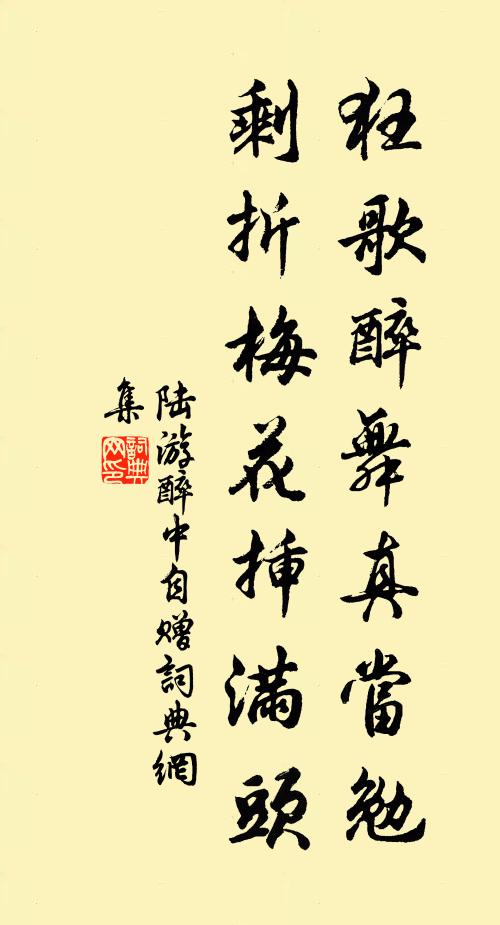 狂歌醉舞真當勉
剩折梅花插滿頭
陆游醉中自赠詞典網
集
詞典
网印